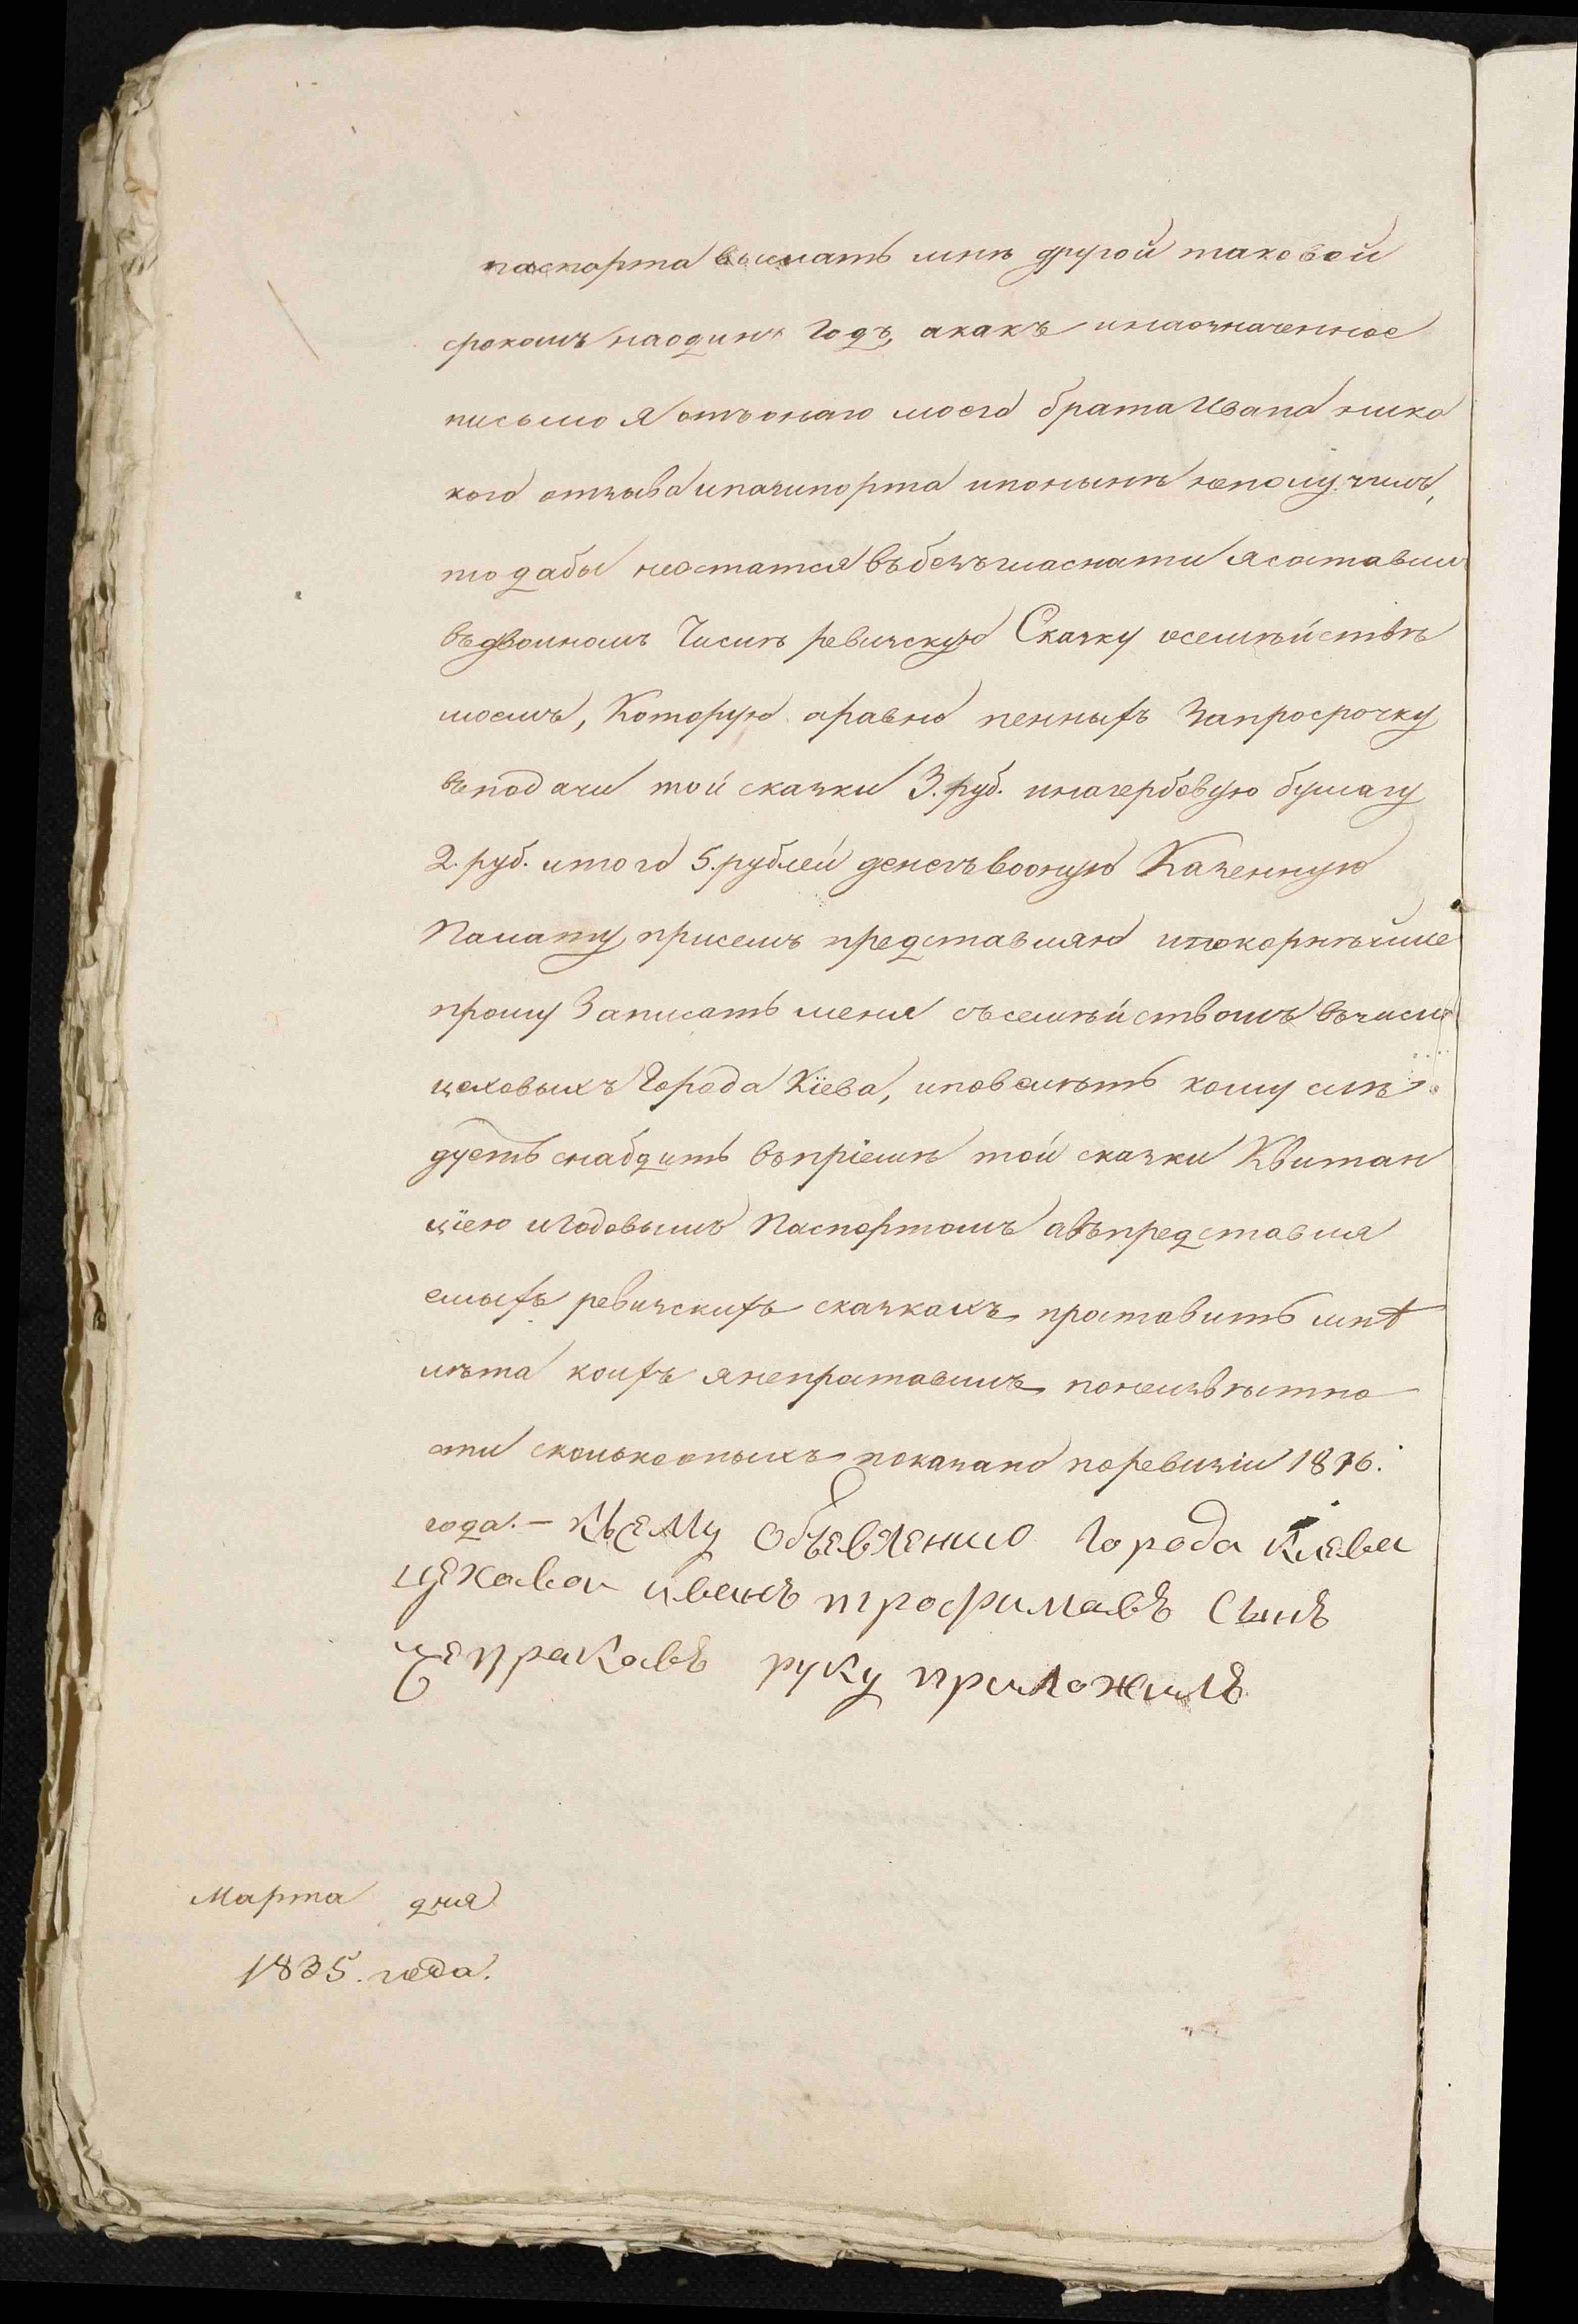 паспорта выслать мнѣ другой таковой
срокомъ наодинъ Годъ, акакъ инаозначенное
письмо я отъонаго моего брата Ивана ника
кого отзыва ипашпорта ипонынѣ неполучилъ,
то дабы неостатся въбезъгласнати ясоставилъ
въдвоиномъ Числѣ ревизскую Сказку осемѣйствѣ
моемъ, Которую аравно пенныхъ Запросрочку
въподачи той сказки 3. руб. инагербовую бумагу
2. руб. итого 5. рублей денегъ вооную Казенную
Палату присемъ представляю ипокорнѣйше
прошу Записать меня съсемѣйствомъ вчисло
цеховыхъ Города Кіева, иповелѣть кому слѣ
дуетъ снабдить въпріемѣ той сказки Квитан
ціею иГодовымъ Паспортомъ авъпредставля
емыхъ ревизскихъ сказкахъ проставить мнѣ
лѣта коихъ янепроставилъ понеизвѣстно
сти сколькооныхъ показано поревизіи 1816.
года. – Късему объевлению Города Киева
цеховои иванъ трофимавъ Сынъ
чепраковъ руку приложилъ
Марта дня
1835. года.